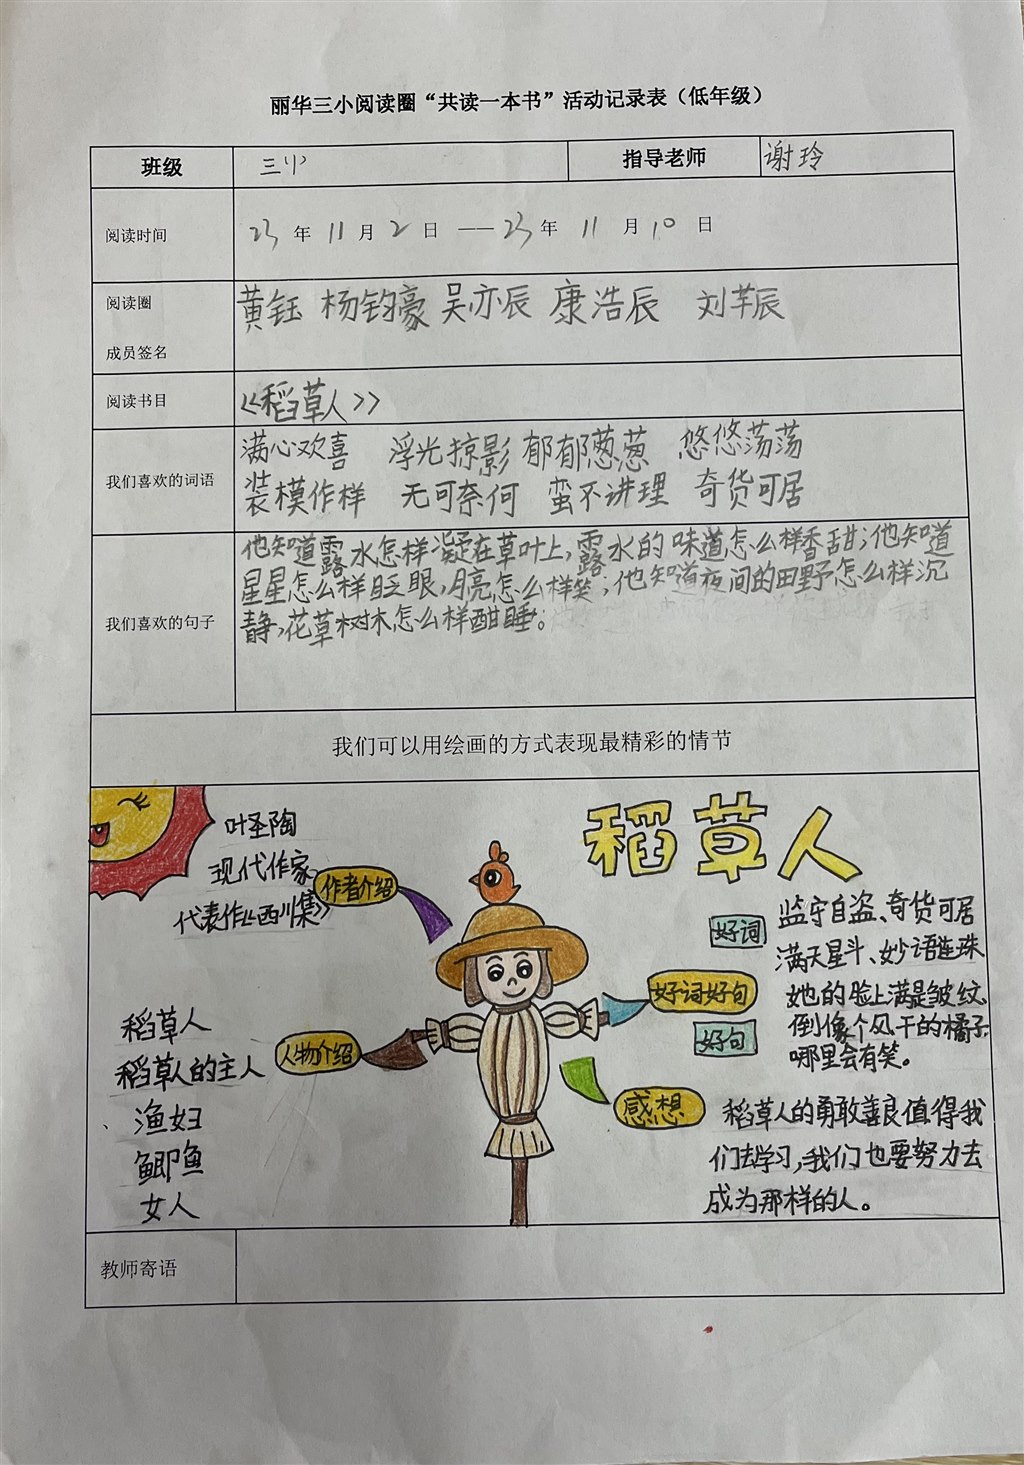 丽华三小阅读圈“共读一本书”活动记录表（低年级）
班级
指导老师 谢玲
阅读时间 23年11月2日——23年11月10日
阅读圈
成员签名
黄钰 杨钧豪 吴亦辰 康浩辰 刘芊辰
阅读书目 《稻草人》
我们喜欢的词语
满心欢喜 浮光掠影 郁郁葱葱 悠悠荡荡
装模作样 无可奈何 蛮不讲理 奇货可居
我们喜欢的句子
他知道露水怎样凝在草叶上，露水的味道怎么样香甜；他知道
星星怎么样眨眼，月亮怎么样笑；他知道夜间的田野怎么样沉
静，花草树木怎么样酣睡。
我们可以用绘画的方式表现最精彩的情节
稻草人
叶圣陶
现代作家
代表作《西川集》
作者介绍
好词
监守自盗、奇货可居
满天星斗、妙语连珠
好词好句
好句
她的脸上满是皱纹，
倒像个风干的橘子，
哪里会有笑。
人物介绍
稻草人
稻草人的主人
渔妇
鲫鱼
女人
感想
稻草人的勇敢善良值得我
们去学习，我们也要努力去
成为那样的人。
教师寄语